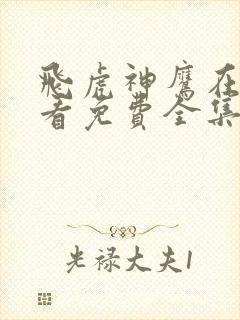 飛虎神鷹在
看免費全集
光祿大夫1